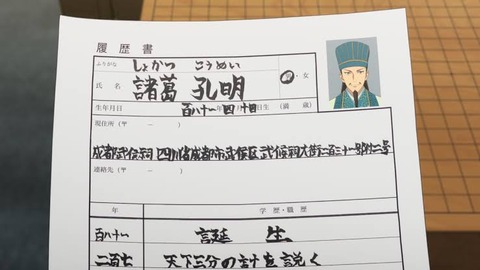 履歴書
ふりがな しょかつ こうめい
氏名 諸葛 孔明 男・女
生年月日 百八十一 四 十日生 (満 歳)
現住所 (〒 − )
成都武侯祠 四川省成都市武侯区武侯祠大街二百三十一号附二号
連絡先 (〒 − )
年 学歴・職歴
百八十一 誕生
二百七 天下三分の計を説く